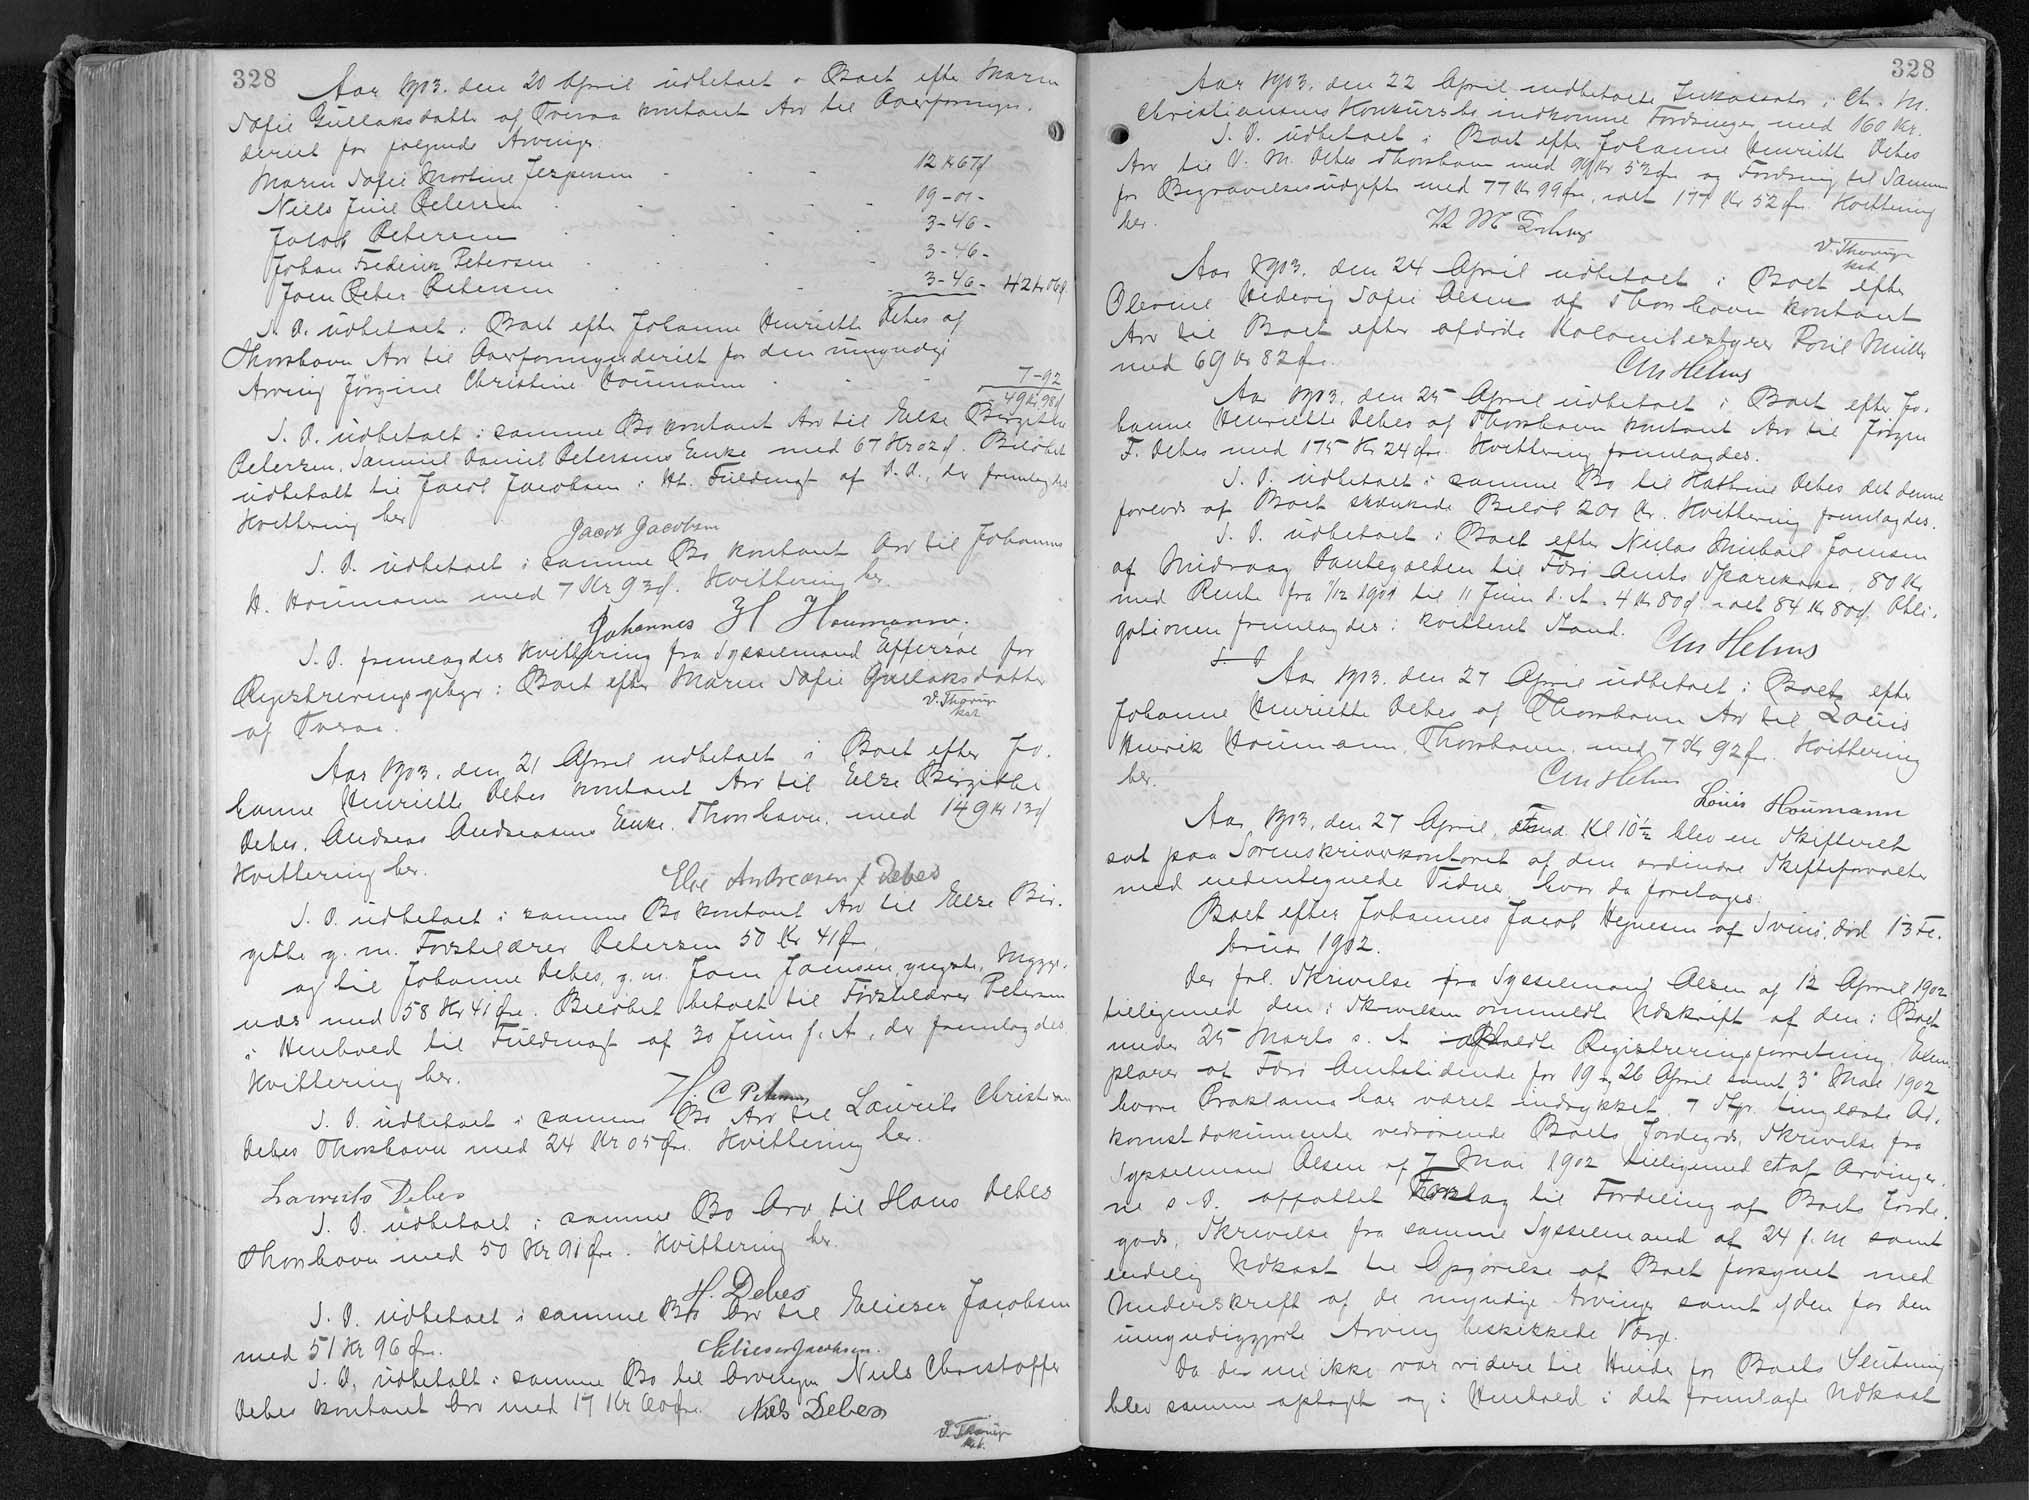 328
Aar 1903. den 20 April udbetalt i Boet efter Maren
Sofie Gullaksdatter af Tveraa kontant Arv til Overformyn-
deriet for følgende Arvinger:
Maren Sofie Mortine Jespersen 12 Kr 67 Ø
Niels Juul Petersen 19 - 01 -
Jacob Petersen 3 - 46 -
Johan Frederik Petersen 3 - 46 -
Joen Peter Petersen 3 - 46 - 42 Kr 06 Ø
S. D. udbetalt i Boet efter Johanne Henriette Debes af
Thorshavn Arv til Overformynderiet for den umyndige
Arving Jørgine Christine Houmann 7 - 92
49 Kr 98 Ø
S. D. udbetalt i samme Bo kontant Arv til Else Birgitte
Petersen, Samuel Daniel Petersens Enke med 67 Kr 02 Ø. Beløbet
udbetalt til Jacob Jacobsen i Hht. Fuldmagt af D. D., der fremlagdes
Kvittering her
Jacob Jacobsen
S. D. udbetalt i samme Bo kontant Arv til Johannes
H. Houmann med 7 Kr 93 Ø. Kvittering her.
Johannes H Houmann.
S. D. fremlagdes Kvittering fra Sysselmand Effersøe for
Registreringsgebyr i Boet efter Maren Sofie Gullaksdatter
af Tveraa.
V. Thorup
kst.
Aar 1903. den 21 April udbetalt i Boet efter Jo-
hanne Henriette Debes kontant Arv til Else Birgitte
Debes, Andreas Andreasens Enke, Thorshavn, med 149 Kr 13 Ø
Kvittering her.
Else Andreasen f Debes
S. D. udbetalt i samme Bo kontant Arv til Else Bir-
githe g. m. Førstelærer Petersen 50 Kr 41 Øre
og til Johanne Debes, g. m. Joen Joensen, yngste, Mygge-
næs med 58 Kr 41 Øre. Beløbet betalt til Førstelærer Petersen
i Henhold til Fuldmagt af 30 Juni f. A., der fremlagdes
Kvittering her.
H. C Petersen
S. D. udbetalt i samme Bo Arv til Laurits Christian
Debes Thorshavn med 24 Kr 05 Øre. Kvittering her.
Laurits Debes
S. D. udbetalt i samme Bo Arv til Hans Debes
Thorshavn med 50 Kr 91 Øre. Kvittering her.
H. Debes
S. D. udbetalt i samme Bo Arv til Elieser Jacobsen
med 51 Kr 96 Øre.
Elieser Jacobsen.
S. D. udbetalt i samme Bo til Arvingen Niels Christoffer
Debes kontant Arv med 17 Kr 60 Øre.
Niels Debes
V. Thorup
kst.
328
Aar 1903. den 22 April indbetalte Inkassator i Ch. M.
Christiansens Konkursbo indkomne Fordringer med 160 Kr.
S. D. udbetalt i Boet efter Johanne Henriette Debes
Arv til V. M. Debes Thorshavn med 99 Kr 53 Øre og Fordring til Samme
for Begravelsesudgifter med 77 Kr 99 Øre, ialt 177 Kr 52 Øre. Kvittering
her.
V. Thorup
kst.
Aar 1903. den 24 April udbetalt i Boet efter
Olevine Hedevig Sofie Olsen af Thorshavn kontant
Arv til Boet efter afdøde Kolonibestyrer Povil Müller
med 69 Kr 82 Øre.
Chr Helms
Aar 1903. den 25 April udbetalt i Boet efter Jo-
hanne Henriette Debes af Thorshavn kontant Arv til Jørgen
F. Debes med 175 Kr 24 Øre. Kvittering fremlagdes.
S. D. udbetalt i samme Bo til Kathrine Debes det denne
forlods af Boet skænkede Beløb 200 Kr. Kvittering fremlagdes.
S. D. udbetalt i Boet efter Niclas Michael Joensen
af Midvaag Pantegælden til Færø Amts Sparekasse, 80 Kr
med Rente fra 11/12 1901 til 11 Juni d. A. 4 Kr 80 Ø. ialt 84 Kr 80 Ø. Obli-
gationen fremlagdes i kvitteret Stand.
Chr Helms
S. D
Aar 1903. den 27 April udbetalt i Boet efter
Johanne Henriette Debes af Thorshavn Arv til Louis
Henrik Houmann, Thorshavn, med 7 Kr 92 Øre. Kvittering
her.
Chr Helms
Louis Houmann
Aar 1903, den 27 April, Fmd. Kl 10½ blev en Skifteret
sat paa Sorenskriverkontoret af den ordinære Skifteforvalter
med undertegnede Vidner, hvor da foretoges:
Boet efter Johannes Jacob Hejnesen af Svinø, død 13 Fe-
bruar 1902.
Der frl. Skrivelse fra Sysselmand Olsen af 12 April 1902
tilligemed den i Skrivelsen ommeldte Udskrift af den i Boet
under 25 Marts s. A. afholdte Registreringsforretning, Exem-
plarer af Færø Amtstidende for 19 og 26 April samt 3 Mai 1902
hvori Proklama har været indrykket, 7 Stkr. tinglæste Ad-
komstdokumenter vedrørende Boets Jordegods, Skrivelse fra
Sysselmand Olsen af 7 Mai 1902 tilligemed et af Arvinger-
ne s. D. affattet Forslag til Fordeling af Boets Jorde-
gods, Skrivelse fra samme Sysselmand af 24 f. M samt
endelig Udkast til Opgjørelse af Boet forsynet med
Underskrift af de myndige Arvinger samt af den for den
umyndiggjorte Arving beskikkede Værge.
Da der nu ikke var videre til Hinder for Boets Slutning
blev samme optaget og i Henhold i det fremlagte Udkast